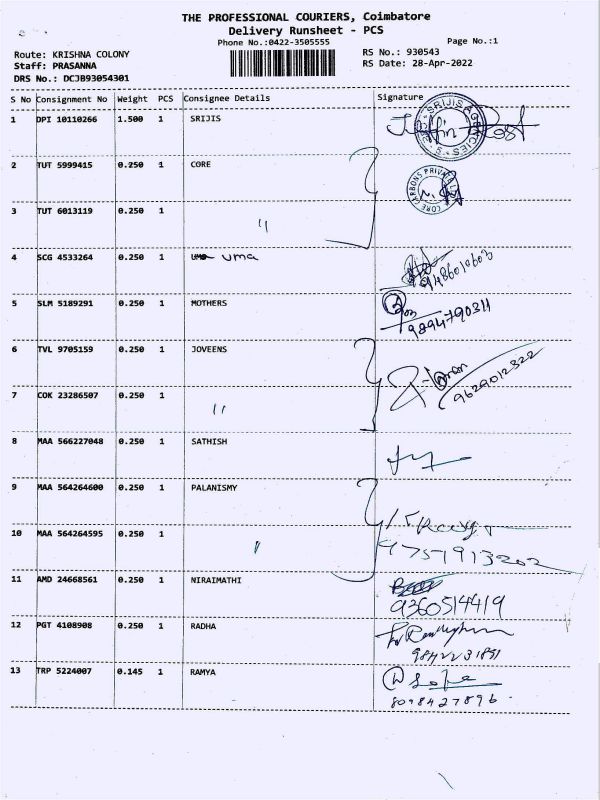 THE PROFESSIONAL COURIERS, Coimbatore
Delivery Runsheet - PCS
Phone No.:0422-3505555 Page No.:1
Route: KRISHNA COLONY RS No.: 930543
Staff: PRASANNA RS Date: 28-Apr-2022
DRS No.: DCJB93054301
S No Consignment No Weight PCS Consignee Details Signature
1 DPI 10110266 1.500 1 SRIJIS
SRIJIS AGENCIES
2 TUT 5999415 0.250 1 CORE
CORE CARBONS PRIVATE
3 TUT 6013119 0.250 1 "
4 SCG 4533264 0.250 1 uma
9486010603
5 SLM 5189291 0.250 1 MOTHERS
9894790311
6 TVL 9705159 0.250 1 JOVEENS
9629012322
7 COK 23286507 0.250 1 "
8 MAA 566227048 0.250 1 SATHISH
9 MAA 564264600 0.250 1 PALANISMY
10 MAA 564264595 0.250 1 "
9751913202
11 AMD 24668561 0.250 1 NIRAIMATHI
9360514419
12 PGT 4108908 0.250 1 RADHA
13 TRP 5224007 0.145 1 RAMYA
8098427896